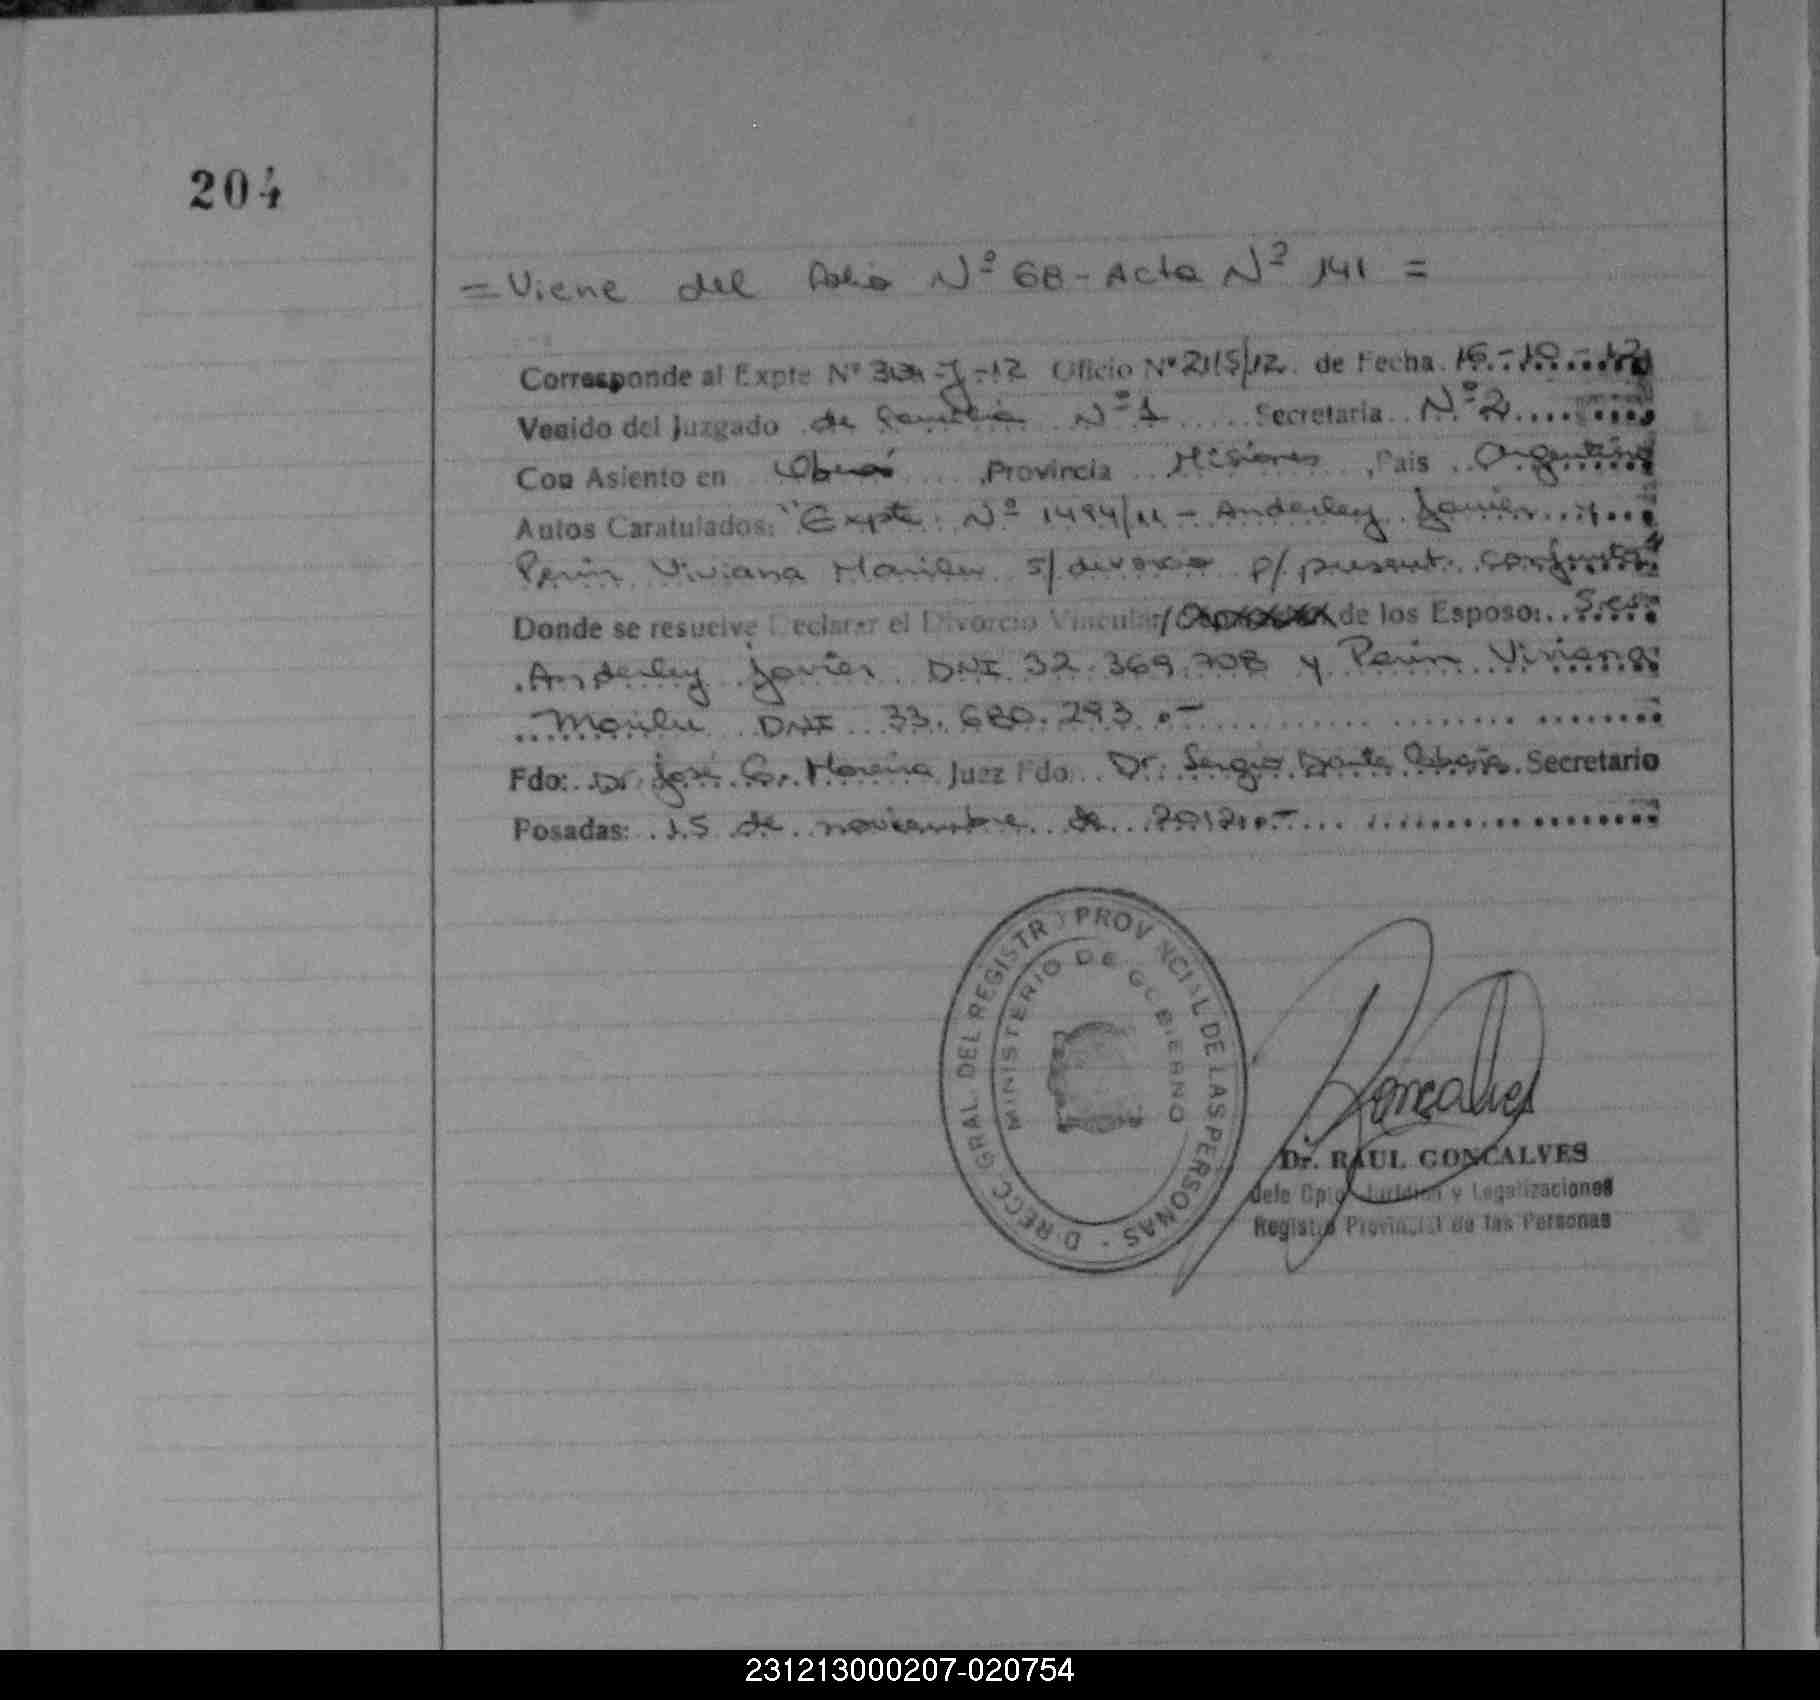 204
= Viene del folio Nº 68 - Acta Nº 141 =
Corresponde al Expte Nº -J-12 Oficio Nº 2115/12 de Fecha 16-10-12
Venido del Juzgado de Familia Nº 1 Secretaria Nº 2
Con Asiento en Oberá, Provincia Misiones, Pais Argentina
Autos Caratulados: "Expte. Nº 1494/11 - Anderley Javier y
Perin Viviana Marilu s/ divorcio p/ present. conjunta"
Donde se resuelve Declarar el Divorcio Vincular/ de los Esposo: Sres
Anderley Javier DNI 32.369.708 y Perin Viviana
Marilu DNI 33.680.293.-
Fdo: Dr. José G. Moreira Juez Fdo: Dr. Sergio Dante Secretario
Posadas: 15 de noviembre de 2012.-
DIRECC. GRAL. DEL REGISTRO PROVINCIAL DE LAS PERSONAS
MINISTERIO DE GOBIERNO
Goncalves
Dr. RAUL GONCALVES
Jefe Dpto. Juridico y Legalizaciones
Registro Provincial de las Personas
231213000207-020754